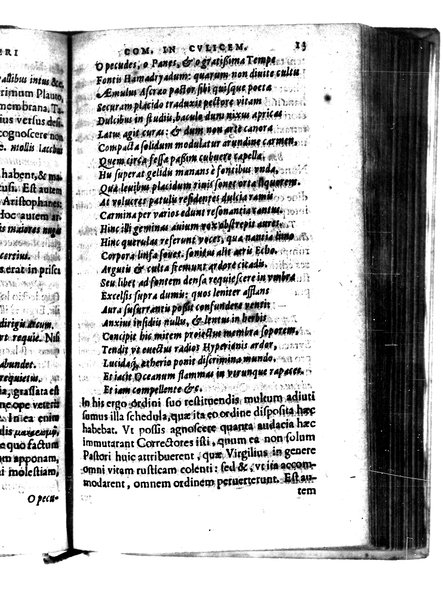 ERI
astibus intus &c,
rimum Plauto,
membrana, Ta
ius versus desi
cognoscere non
mollis iacchus
habent, & ma
cusi. Est autem
Aristophanes:
doc autem ar-
is maiores nugis
erat in priscis
dirigit acum.
requie. Nisi
abundet.
requietus.
ia, grassata est
ope veteri
In ea enim
duis
e quo factum
apponam,
i molestiam,
O pecu-
COM. IN CVLICEM. 13
O pecudes, o Panes, & o gratissima Tempe
Fontis Hamadryadum: quarum non diuite cultu
Æmulus Ascræo pastor sibi quisque poeta
Securam placido traduxit pectore vitam
Dulcibus in studiis, baculo dum nixus apricas
Latus agit curas: & dum non arte canora
Compacta solidum modulatur arundine carmen,
Quem circa fessa passim cubuere capella,
Hu superat gelidu manans è fontibus vnda,
Quâ leuibus placidum riuis sonet orta liquorem.
At volucres patulis residentes dulcia ramis
Carmina per varios edunt resonantia cantus.
Hinc illi geminas auium vox abstrepit aures:
Hinc querulas referunt voces, qua nantia limo
Corpora linfa fouet. sonitus alit aeris Echo.
Argutis & culta fremunt ardore cicadis.
Seu libet ad fontem densa requiescere in vmbra
Excelsis supra dumis: quos leniter afflans
Aura susurrantis possit confundere venti:
Anxius insidiis nullis, & lentus in herbis
Concipit hic mitem proiectus membra soporem.
Tendit vt euectus radios Hyperionis ardor,
Lucidaq, ætherio ponit discrimina mundo,
Et iacit Oceanum flammas in verunque rapaces.
Et iam compellente &c.
In his ergo ordini suo restituendis multum adiuti
sumus illa schedula, quæ ita eo ordine disposita hæc
habebat. Vt possis agnoscere quanta audacia hæc
immutarant Correctores isti, quum ea non solum
Pastori huic attribuerent, quæ Virgilius in genere
omni vitam rusticam colenti: sed &, vt ita accom-
modarent, omnem ordinem peruerterunt. Est au-
tem